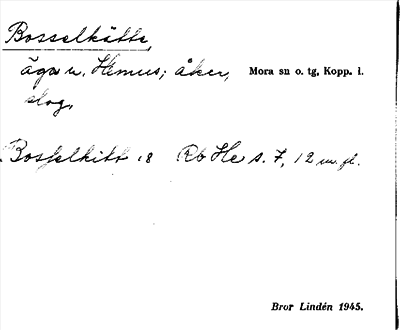 Bosselkätte,
äga u. Hemus; åker, Mora sn o. tg, Kopp. l.
slog,
Bosselkitt 18 Rb He s. 7, 12 m. fl.
Bror Lindén 1945.